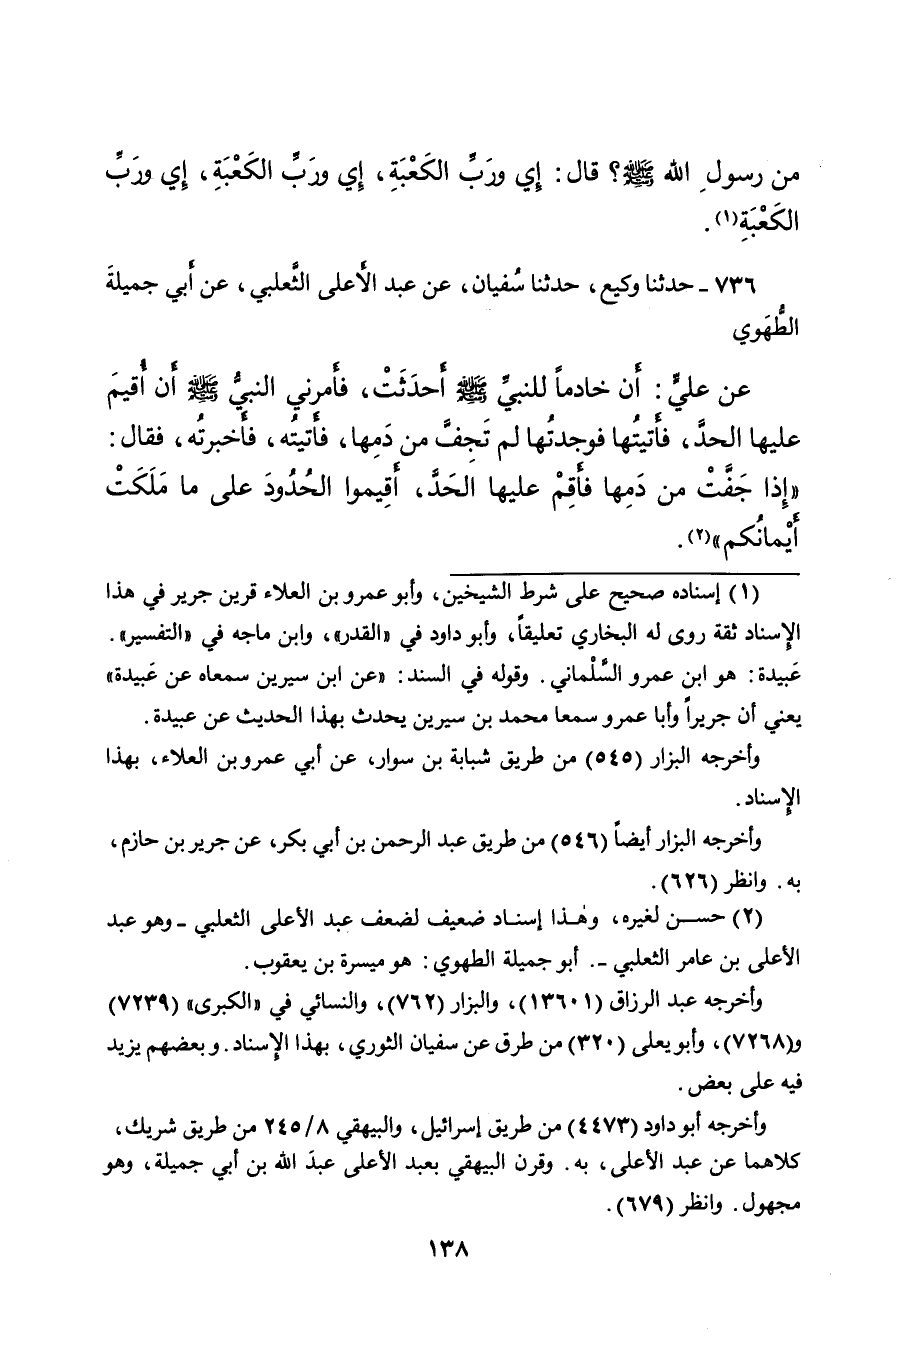 من رسولِ الله ﷺ؟ قال: إي ورَبِّ الكَعْبَةِ، إي ورَبِّ الكَعْبَةِ، إي ورَبِّ
الكَعْبَةِ(١).
٧٣٦ ـ حدثنا وكيع، حدثنا سُفيان، عن عبد الأَعلى الثَّعلبي، عن أَبي جميلةَ
الطُّهَوي
عن عليٍّ: أَن خادماً للنبيِّ ﷺ أَحدَثَتْ، فأَمرني النبيُّ ﷺ أَن أُقيمَ
عليها الحدَّ، فأَتيتُها فوجدتُها لم تَجِفَّ من دَمِها، فأَتيتُه، فأَخبرتُه، فقال:
«إِذا جَفَّتْ من دَمِها فأَقِمْ عليها الحَدَّ، أَقِيموا الحُدُودَ على ما مَلَكَتْ
أَيْمانُكم»(٢).
(١) إسناده صحيح على شرط الشيخين، وأبو عمرو بن العلاء قرين جرير في هذا
الإسناد ثقة روى له البخاري تعليقاً، وأبو داود في «القدر»، وابن ماجه في «التفسير».
عَبيدة: هو ابن عمرو السَّلْماني. وقوله في السند: «عن ابن سيرين سمعاه عن عَبيدة»
يعني أن جريراً وأبا عمرو سمعا محمد بن سيرين يحدث بهذا الحديث عن عبيدة.
وأخرجه البزار (٥٤٥) من طريق شبابة بن سوار، عن أبي عمرو بن العلاء، بهذا
الإسناد.
وأخرجه البزار أيضاً (٥٤٦) من طريق عبد الرحمن بن أبي بكر، عن جرير بن حازم،
به. وانظر (٦٢٦).
(٢) حسن لغيره، وهٰذا إسناد ضعيف لضعف عبد الأعلى الثعلبي ـ وهو عبد
الأعلى بن عامر الثعلبي ـ. أبو جميلة الطهوي: هو ميسرة بن يعقوب.
وأخرجه عبد الرزاق (١٣٦٠١)، والبزار (٧٦٢)، والنسائي في «الكبرى» (٧٢٣٩)
و(٧٢٦٨)، وأبو يعلى (٣٢٠) من طرق عن سفيان الثوري، بهذا الإسناد. وبعضهم يزيد
فيه على بعض.
وأخرجه أبو داود (٤٤٧٣) من طريق إسرائيل، والبيهقي ٢٤٥/٨ من طريق شريك،
كلاهما عن عبد الأعلى، به. وقرن البيهقي بعبد الأعلى عبدَ الله بن أبي جميلة، وهو
مجهول. وانظر (٦٧٩).
١٣٨